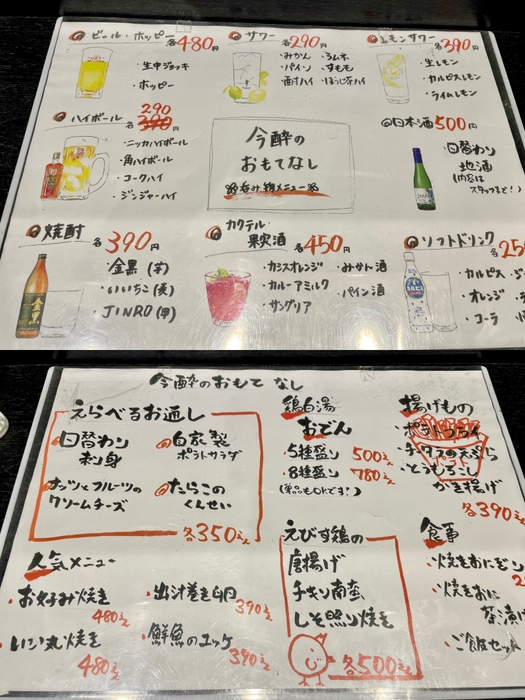 ビール・ホッピー 各480円
・生中ジョッキ
・ホッピー
サワー 各290円
・みかん ・ラムネ
・パイン ・すもも
・酎ハイ ・ほうじ茶ハイ
レモンサワー 各390円
・生レモン
・カルピスレモン
・ライムレモン
ハイボール 各290
390円
・ニッカハイボール
・角ハイボール
・コークハイ
・ジンジャーハイ
今酔の
おもてなし
呑み物メニュー
日本酒500円
・日替わり
地酒
(内容は
スタッフまで!)
焼酎 各390円
・金黒(芋)
・いいちこ(麦)
・JINRO(甲)
カクテル・
果実酒 各450円
・カシスオレンジ ・みかん酒
・カルーアミルク ・パイン酒
・サングリア
ソフトドリンク 各25
・カルピス
・オレンジ
・コーラ
今酔のおもてなし
えらべるお通し
日替わり
刺身
自家製
ポテトサラダ
ナッツとフルーツの
クリームチーズ
たらこの
くんせい
各350えん
鶏白湯
おでん
・5種盛り 500えん
・8種盛り 780えん
(単品もOKです!)
揚げもの
・とうもろこし
かき揚げ
各390
人気メニュー
・お好み焼き
480えん
・出汁巻き卵
390えん
480えん
・鮮魚のユッケ
390えん
えびす鶏の
唐揚げ
チキン南蛮
しそ照り焼き
各500えん
食事
・焼きおにぎり
・焼きおに
茶漬け
・ご飯セット